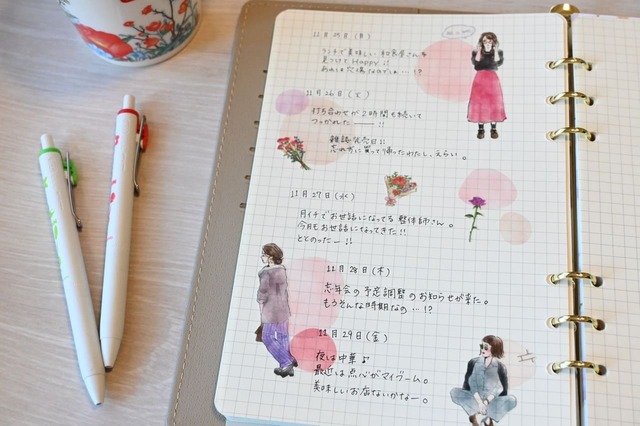 11月25日(月)
ランチで美味しい和食屋さんを
見つけてHappy!!
あれは穴場なのでは…!?
11月26日(火)
打ち合わせが2時間も続いて
つかれたー!!
雑誌発売日!!
忘れずに買って帰ったわたし、えらい。
11月27日(水)
月イチでお世話になってる整体師さん。
今月もお世話になってきた!!
ととのったー!!
11月28日(木)
忘年会の予定調整のお知らせが来た。
もうそんな時期なの…!?
11月29日(金)
夜は中華♪
最近は点心がマイブーム。
美味しいお店ないかなー。